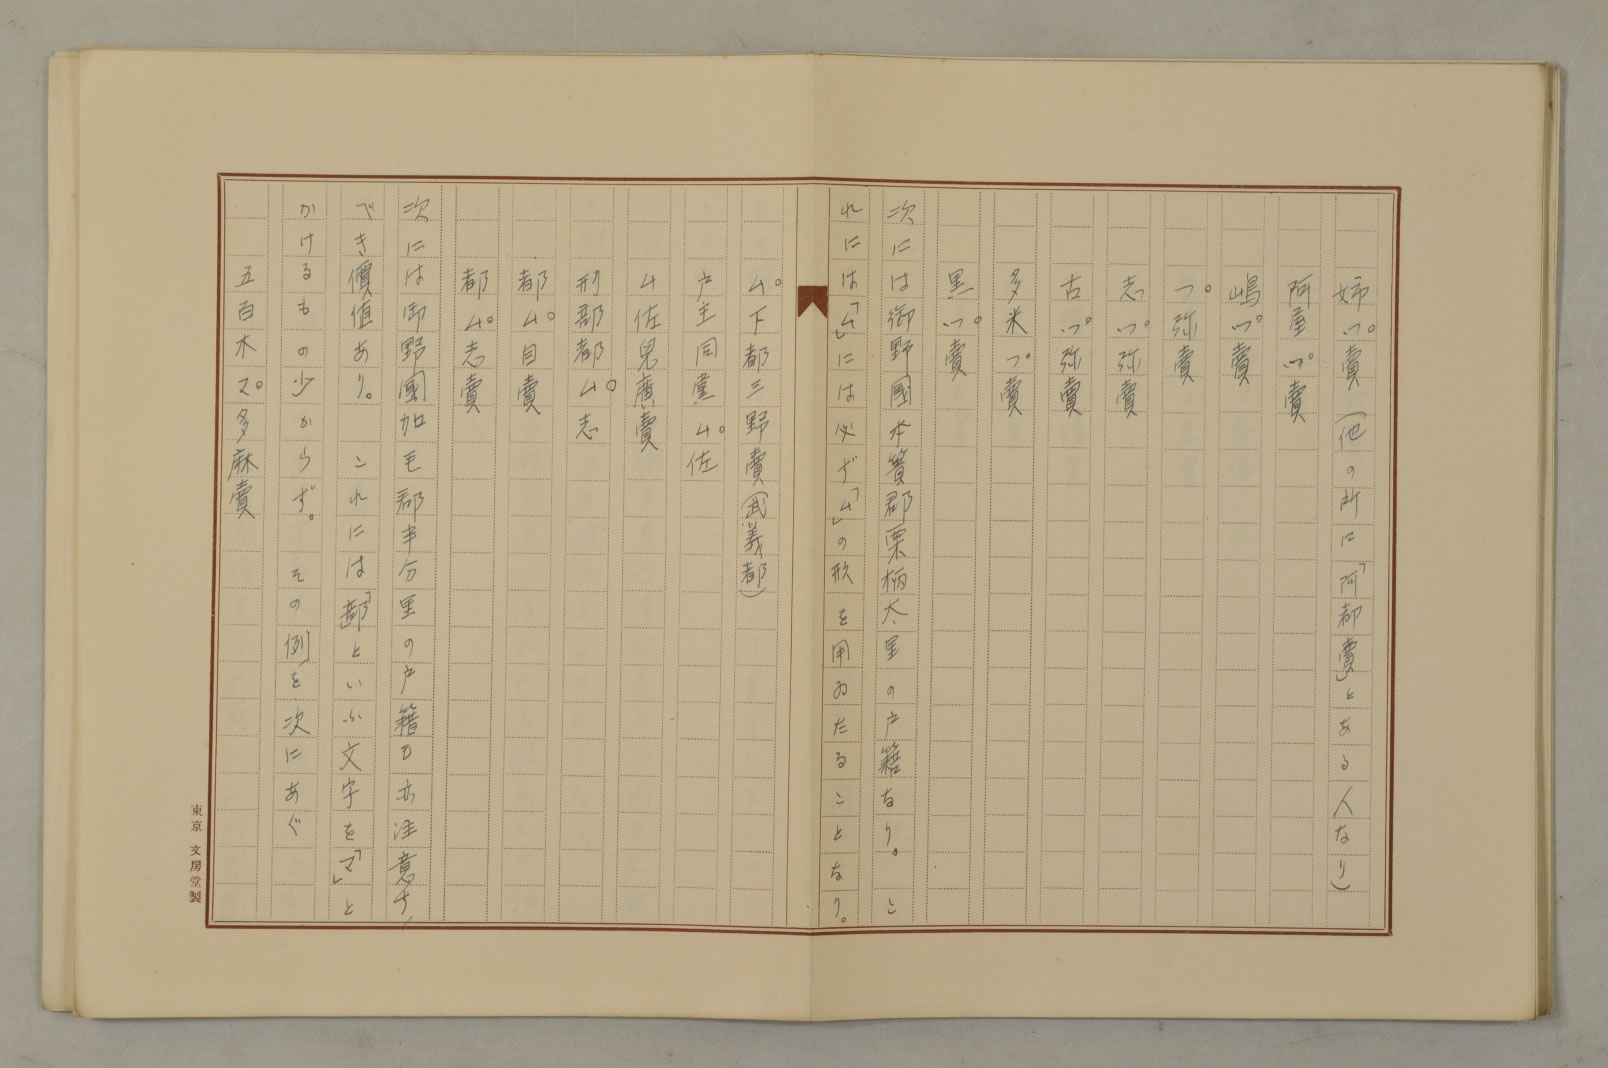 姉ツ゚賣(他の所に「阿都賣」とある人なり)
阿屋ツ゚賣
嶋ツ゚賣
ツ゚弥賣
志ツ゚弥賣
古ツ゚弥賣
多米ツ゚賣
黒ツ゚賣
次には御野國本簀郡栗栖太里の戸籍なり。こ
れには「ム」には必ず「ム」の形を用ゐたることなり。
ム゚下都三野賣(武義都)
戸主同黨ム゚佐
ム佐兒廣賣
刑部都ム゚志
都ム゚自賣
都ム゚志賣
次には御野國加毛郡半布里の戸籍も亦注意す
べき價値あり。これには「部」といふ文字を「マ」と
かけるもの少からず。その例を次にあぐ
五百木マ゚多麻賣
東京 文房堂製